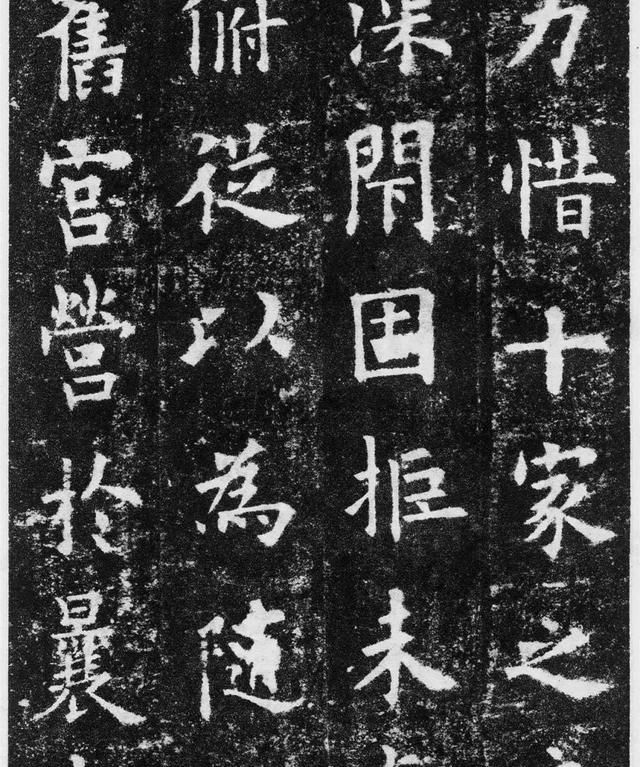 力惜十家之
深閇固拒未
俯從以為隨
舊宮營於曩